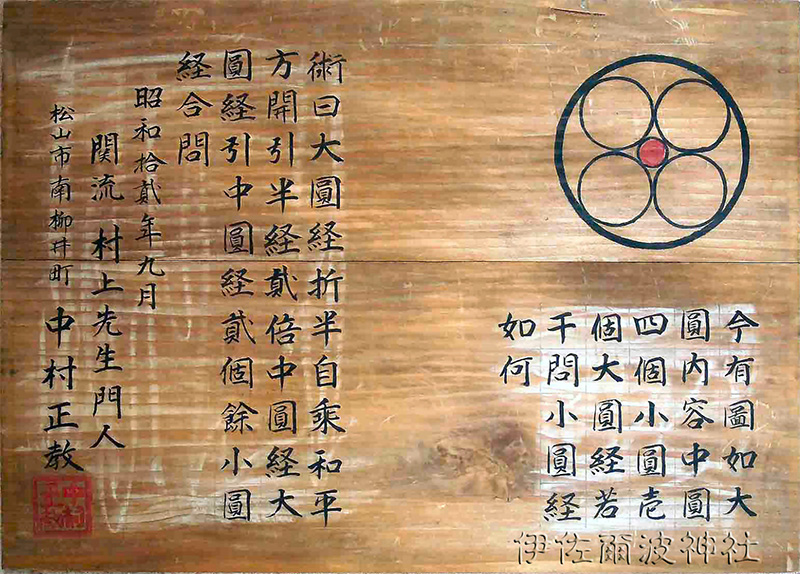 今有圖如大
圓内容中圓
四個小圓壱
個大圓経若
干問小圓経
如何
術曰大圓経折半自乘和平
方開引半経貳倍中圓経大
圓経引中圓経貳個餘小圓
経合問
昭和拾貳年九月
関流 村上先生門人
松山市南柳井町 中村正教
伊佐爾波神社